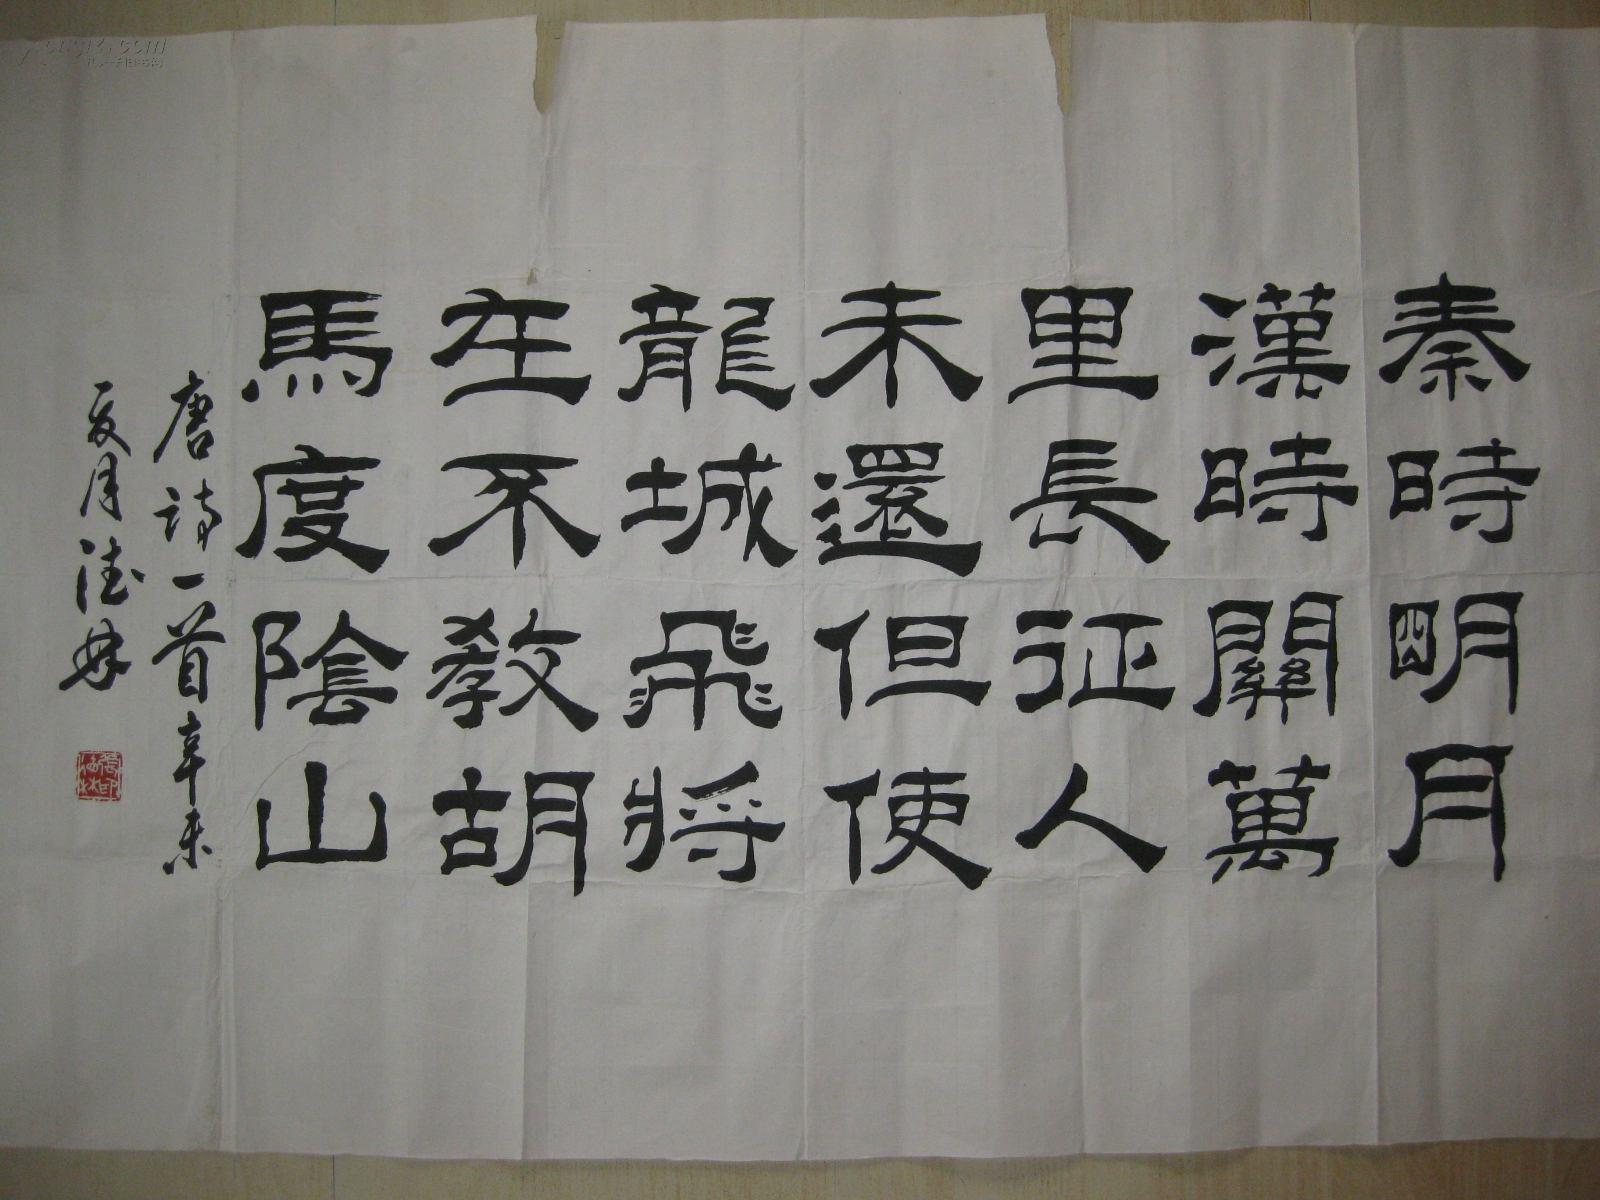 秦時明月
漢時關萬
里長征人
未還但使
龍城飛將
在不教胡
馬度陰山
唐詩一首辛未
夏月德林